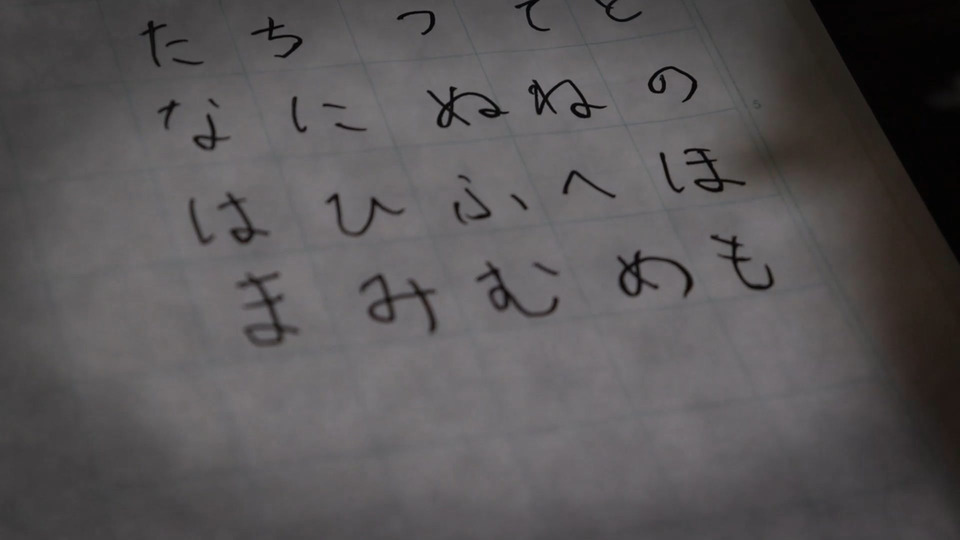 たちつてと
なにぬねの
はひふへほ
まみむめも